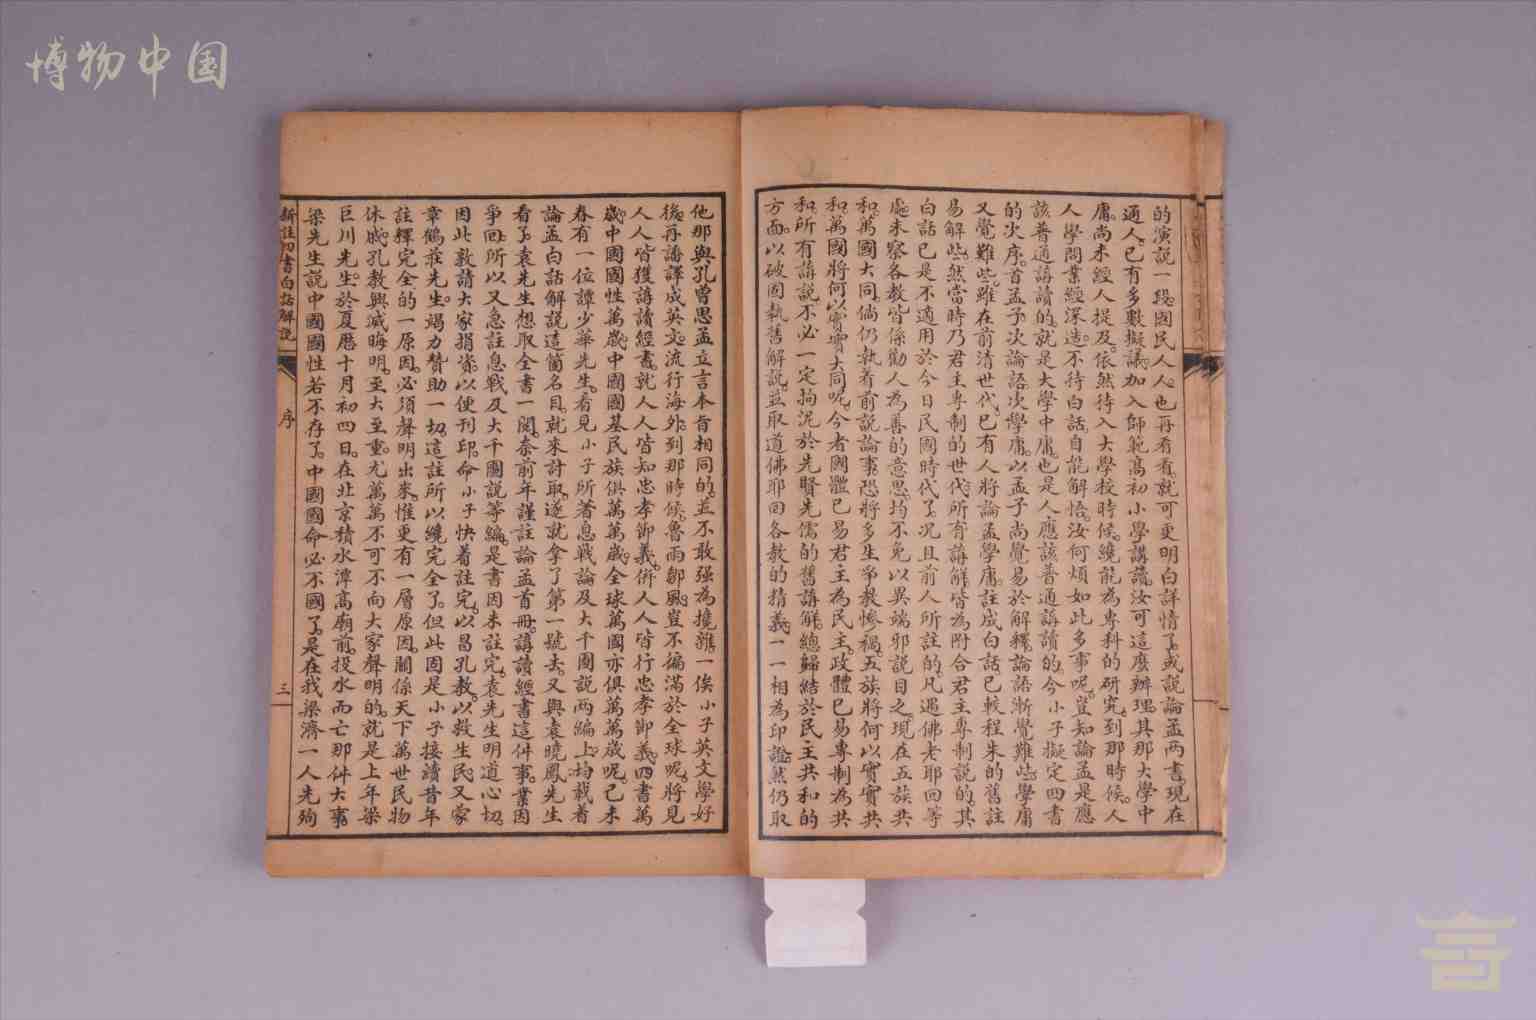 博物中国
的演說一段國民人人也再看看就可更明白詳情了或說論孟两書現在
通人已有多數擬議加入師範高初小學講讀汝可這麼辦理其那大學中
庸尚未經人提及依然待入大學校時候纔能為專科的研究到那時候人
人學問業經深造不待白話自能解悟汝何煩如此多事呢豈知論孟是應
該普通講讀的就是大學中庸也是人應該普通講讀的今小子擬定四書
的次序首孟子次論語次學庸以孟子尚覺易於解釋論語漸覺難些學庸
又覺難些雖在前清世代已有人將論孟學庸註成白話已較程朱的舊註
易解些然當時乃君主專制的世代所有講解皆為附合君主專制說的其
白話已是不適用於今日民國時代了況且前人所註的凡遇佛老耶回等
處未察各教皆係勸人為善的意思均不免以異端邪說目之現在五族共
和萬國大同倘仍執着前說論事恐將多生爭教慘禍五族將何以實實共
和萬國將何以實實大同呢今者國體已易君主為民主政體已易專制為共
和所有講說不必一定拘泥於先賢先儒的舊講解總歸結於民主共和的
方面以破固執舊解說並取道佛耶回各教的精義一一相為印證然仍取
他那與孔曾思孟立言本旨相同的並不敢强為攙雜一俟小子英文學好
後再譒譯成英文流行海外到那時候魯雨鄒風豈不徧滿於全球呢將見
人人皆獲講讀經書就人人皆知忠孝節義併人人皆行忠孝節義四書萬
歲中國國性萬歲中國國基民族俱萬萬歲全球萬國亦俱萬萬歲呢己未
春有一位譚少華先生看見小子所著息戰論及大千圖說两編上均載着
論孟白話解說這箇名目就來討取遂就拿了第一號去又與袁曉鳳先生
看了袁先生想取全書一閱奈前年謹註論孟首冊講讀經書這件事業因
爭回所以又急註息戰及大千圖說等編是書因未註完袁先生明道心切
因此敦請大家捐資以便刊印命小子快着註完以昌孔教以救生民又蒙
章鶴莊先生竭力贊助一切這註所以纔完全了但此固是小子接續昔年
註釋完全的一原因必須聲明出來惟更有一層原因關係天下萬世民物
休戚孔教興滅晦明至大至重尤萬萬不可不向大家聲明的就是上年梁
巨川先生於夏曆十月初四日在北京積水潭高廟前投水而亡那件大事
梁先生說中國國性若不存了中國國命必不國了是在我梁濟一人先殉
新註四書白話解說
序
三